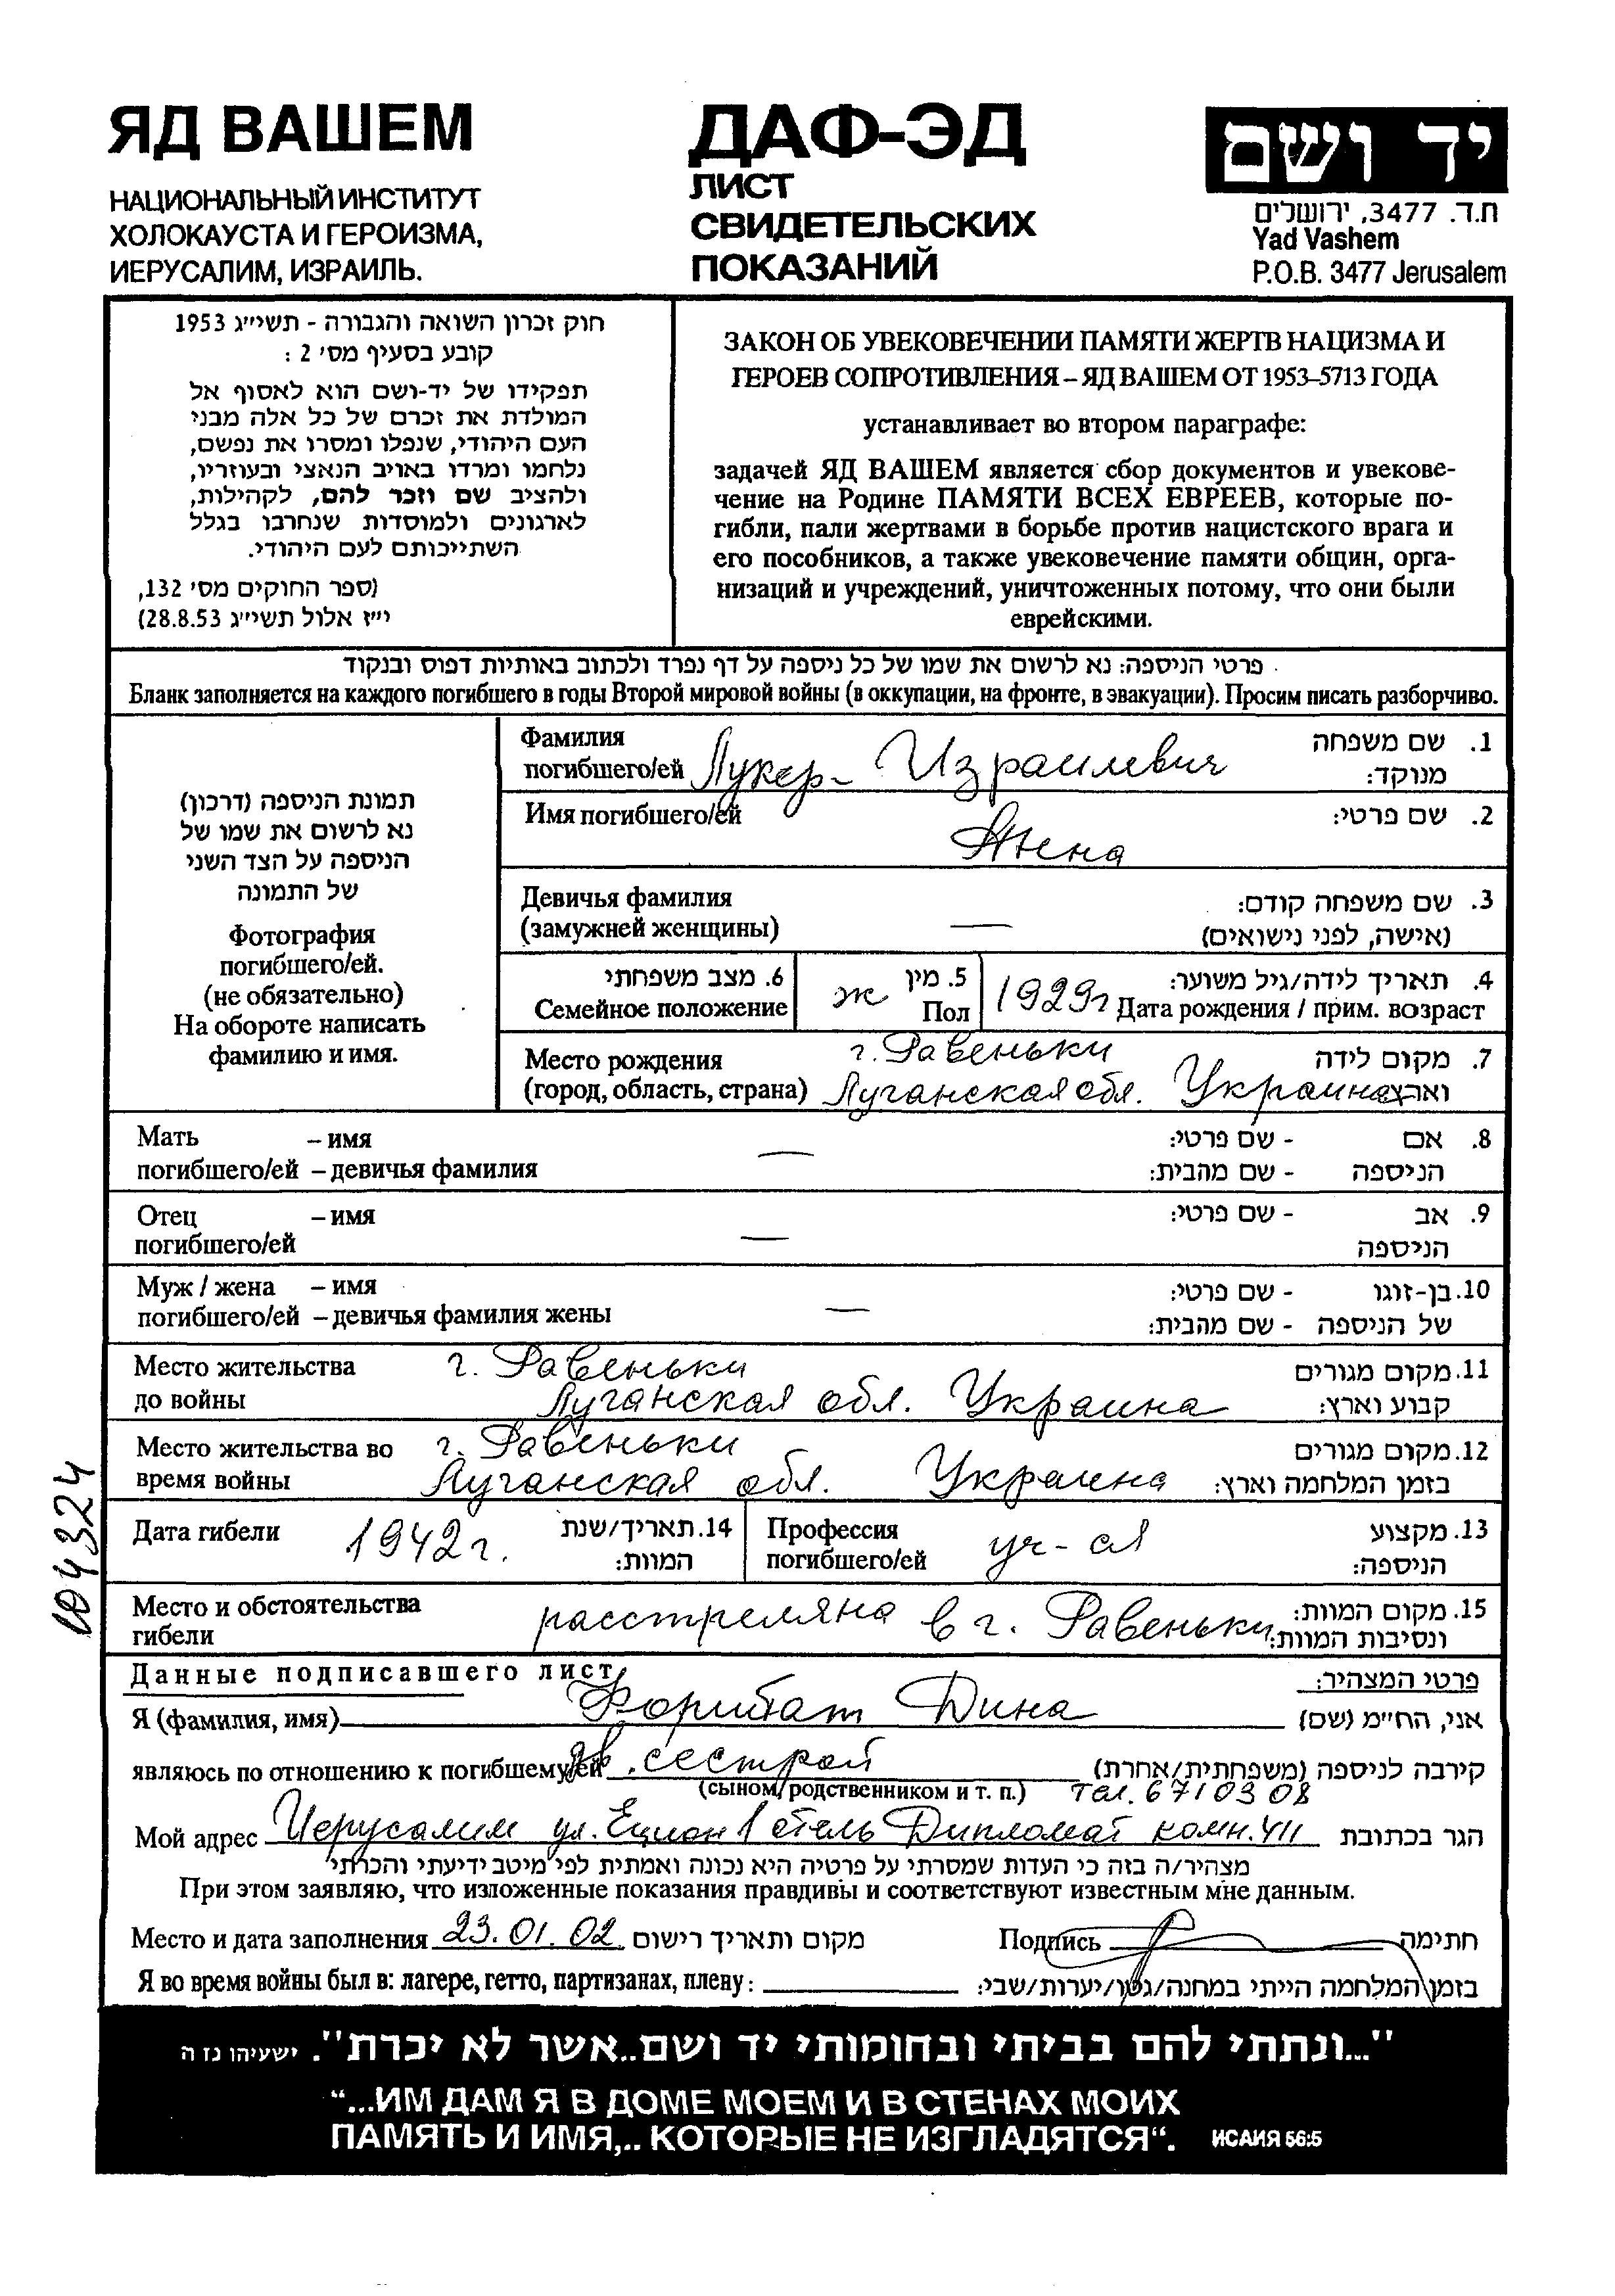 ЯД ВАШЕМ
НАЦИОНАЛЬНЫЙ ИНСТИТУТ
ХОЛОКАУСТА И ГЕРОИЗМА,
ИЕРУСАЛИМ, ИЗРАИЛЬ.
ДАФ-ЭД
ЛИСТ
СВИДЕТЕЛЬСКИХ
ПОКАЗАНИЙ
יד ושם
ת.ד. 3477, ירושלים
Yad Vashem
P.O.B. 3477 Jerusalem
חוק זכרון השואה והגבורה - תשי״ג 1953
קובע בסעיף מס׳ 2 :
תפקידו של יד-ושם הוא לאסוף אל
המולדת את זכרם של כל אלה מבני
העם היהודי, שנפלו ומסרו את נפשם,
נלחמו ומרדו באויב הנאצי ובעוזריו,
ולהציב שם וזכר להם, לקהילות,
לארגונים ולמוסדות שנחרבו בגלל
השתייכותם לעם היהודי.
(ספר החוקים מס׳ 132,
י״ז אלול תשי״ג 28.8.53)
ЗАКОН ОБ УВЕКОВЕЧЕНИИ ПАМЯТИ ЖЕРТВ НАЦИЗМА И
ГЕРОЕВ СОПРОТИВЛЕНИЯ – ЯД ВАШЕМ ОТ 1953–5713 ГОДА
устанавливает во втором параграфе:
задачей ЯД ВАШЕМ является сбор документов и увекове-
чение на Родине ПАМЯТИ ВСЕХ ЕВРЕЕВ, которые по-
гибли, пали жертвами в борьбе против нацистского врага и
его пособников, а также увековечение памяти общин, орга-
низаций и учреждений, уничтоженных потому, что они были
еврейскими.
פרטי הניספה: נא לרשום את שמו של כל ניספה על דף נפרד ולכתוב באותיות דפוס ובנקוד
Бланк заполняется на каждого погибшего в годы Второй мировой войны (в оккупации, на фронте, в эвакуации). Просим писать разборчиво.
תמונת הניספה (דרכון)
נא לרשום את שמו של
הניספה על הצד השני
של התמונה
Фотография
погибшего/ей.
(не обязательно)
На обороте написать
фамилию и имя.
Фамилия 1. שם משפחה
погибшего/ей Лукер- Израилевич מנוקד:
Имя погибшего/ей 2. שם פרטי:
Анна
Девичья фамилия 3. שם משפחה קודם:
(замужней женщины) — (אישה, לפני נישואים)
6. מצב משפחתי 5. מין 4. תאריך לידה/גיל משוער:
Семейное положение ж Пол 1929г Дата рождения / прим. возраст
Место рождения г. Ровеньки 7. מקום לידה
(город, область, страна) Луганская обл. Украина וארץ:
Мать – имя 8. אם - שם פרטי:
погибшего/ей – девичья фамилия — הניספה - שם מהבית:
Отец – имя 9. אב - שם פרטי:
погибшего/ей — הניספה
Муж / жена – имя 10. בן-זוגו - שם פרטי:
погибшего/ей – девичья фамилия жены — של הניספה - שם מהבית:
Место жительства г. Ровеньки 11. מקום מגורים
до войны Луганская обл. Украина קבוע וארץ:
Место жительства во г. Ровеньки 12. מקום מגורים
время войны Луганская обл. Украина בזמן המלחמה וארץ:
Дата гибели 1942г. 14. תאריך/שנת המוות:
Профессия погибшего/ей уч-ся 13. מקצוע הניספה:
Место и обстоятельства 15. מקום המוות:
гибели расстреляна в г. Ровеньки ונסיבות המוות:
Данные подписавшего лист פרטי המצהיר:
Я (фамилия, имя) Дина אני, הח״מ (שם)
являюсь по отношению к погибшему/ей дв. сестрой קירבה לניספה (משפחתית/אחרת)
(сыном, родственником и т. п.) тел. 6710308
Мой адрес Иерусалим ул. Ецион 1 отель Дипломат комн. 411 הגר בכתובת
מצהיר/ה בזה כי העדות שמסרתי על פרטיה היא נכונה ואמתית לפי מיטב ידיעתי והכרתי
При этом заявляю, что изложенные показания правдивы и соответствуют известным мне данным.
Место и дата заполнения 23.01.02 מקום ותאריך רישום Подпись חתימה
Я во время войны был в: лагере, гетто, партизанах, плену: בזמן המלחמה הייתי במחנה/גטו/יערות/שבי:
104324
"...ונתתי להם בביתי ובחומותי יד ושם..אשר לא יכרת". ישעיהו נז ה
“...ИМ ДАМ Я В ДОМЕ МОЕМ И В СТЕНАХ МОИХ
ПАМЯТЬ И ИМЯ,.. КОТОРЫЕ НЕ ИЗГЛАДЯТСЯ“. ИСАИЯ 56:5